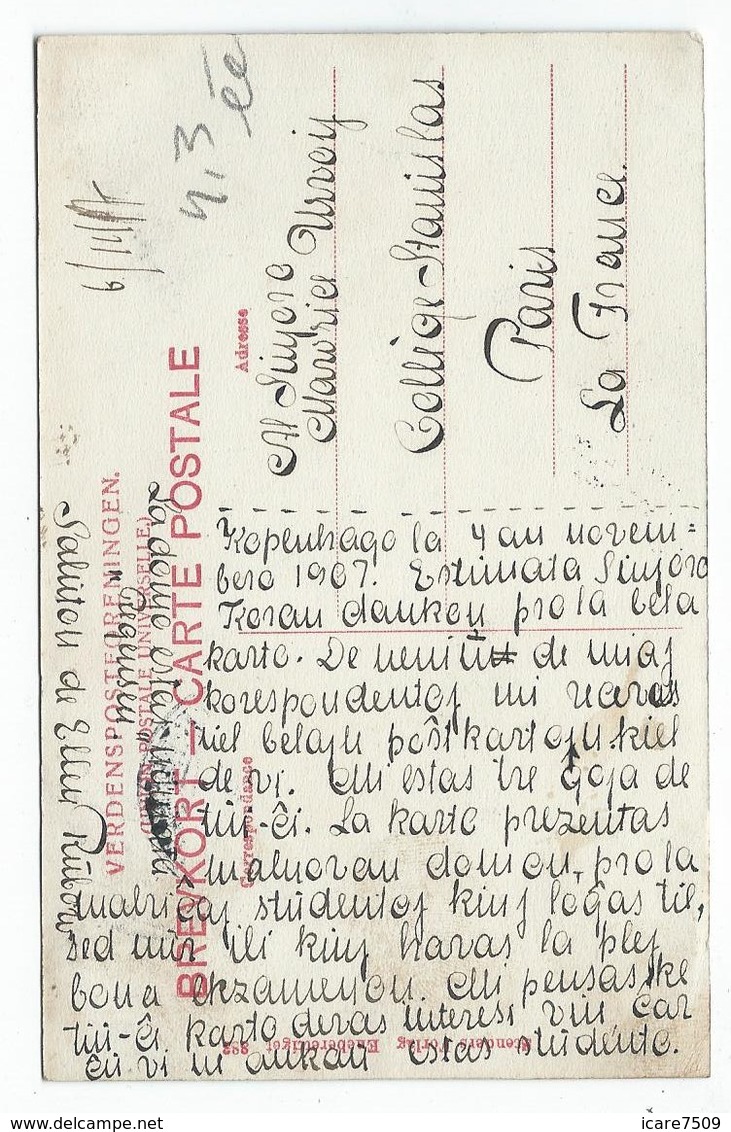 VERDENSPOSTFORENINGEN.
(UNION POSTALE UNIVERSELLE)
BREVKORT — CARTE POSTALE
Correspondance
Adresse
6/11/07
Al Sinjoro
Maurice Urvoy
Collège-Stanislas
Paris
La France.
Kopenhago la 4an novem=
bero 1907. Estimata Sinjoro
Koran dankon pro la bela
karto. De neniu de miaj
korespondentoj mi ricevas
tiel belajn poŝtkartojn kiel
de vi. Mi estas tre ĝoja de
tiu-ĉi. La karto prezentas
malnovan domon, pro la
malriĉaj studentoj kiuj loĝas tie,
sed nur ili kiuj havas la plej
bona ekzamenon. Mi pensas ke
tiu-ĉi karto devas interesi vin ĉar
ĉu vi ne ankaŭ estas studento.
La domo estas nomata
"Regensen"
Saluton de Ellen Rübow
Stenders Forlag Eneberettiget 882
icare7509